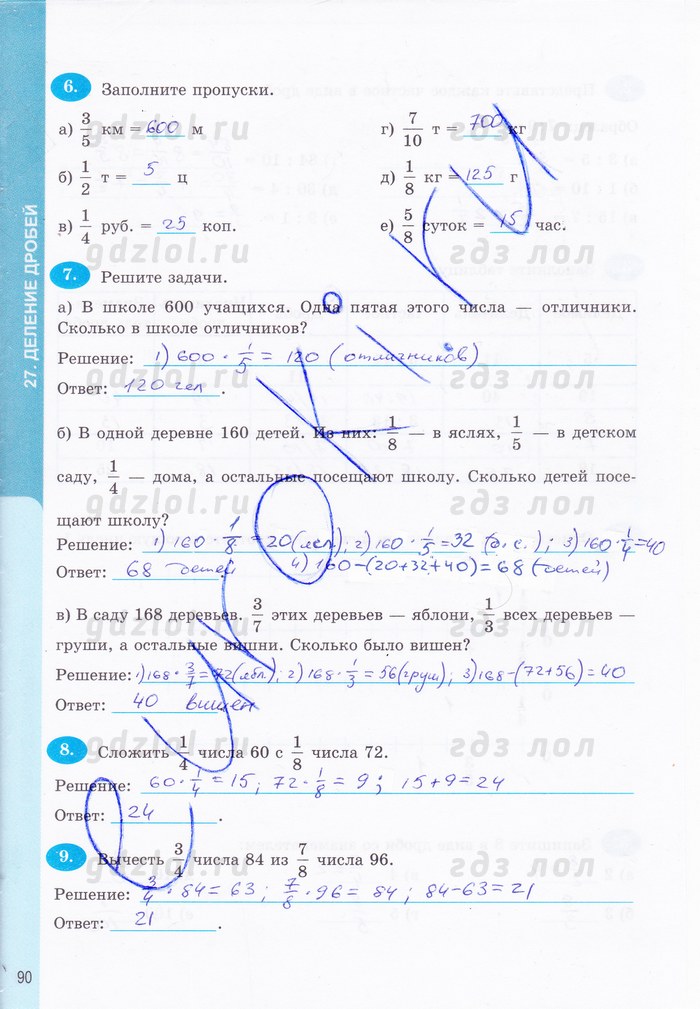 6. Заполните пропуски.
а) 3/5 км = 600 м
г) 7/10 т = 700 кг
gdzlol.ru гдз лол
б) 1/2 т = 5 ц
д) 1/8 кг = 125 г
gdzlol.ru гдз лол
в) 1/4 руб. = 25 коп.
е) 5/8 суток = 15 час.
gdzlol.ru гдз лол
27. ДЕЛЕНИЕ ДРОБЕЙ
7. Решите задачи.
а) В школе 600 учащихся. Одна пятая этого числа — отличники.
Сколько в школе отличников?
Решение: 1) 600 · 1/5 = 120 (отличников)
gdzlol.ru гдз лол
Ответ: 120 чел.
б) В одной деревне 160 детей. Из них: 1/8 — в яслях, 1/5 — в детском
саду, 1/4 — дома, а остальные посещают школу. Сколько детей посе-
gdzlol.ru гдз лол
щают школу?
Решение: 1) 160 · 1/8 = 20 (ясл.); 2) 160 · 1/5 = 32 (д. с.); 3) 160 · 1/4 = 40
Ответ: 68 детей. 4) 160 – (20+32+40) = 68 (детей)
в) В саду 168 деревьев. 3/7 этих деревьев — яблони, 1/3 всех деревьев —
gdzlol.ru гдз лол
груши, а остальные вишни. Сколько было вишен?
Решение: 1) 168 · 3/7 = 72 (ябл.); 2) 168 · 1/3 = 56 (груш); 3) 168 – (72+56) = 40
Ответ: 40 вишен
8. Сложить 1/4 числа 60 с 1/8 числа 72.
gdzlol.ru гдз лол
Решение: 60 · 1/4 = 15; 72 · 1/8 = 9; 15+9=24
Ответ: 24.
9. Вычесть 3/4 числа 84 из 7/8 числа 96.
gdzlol.ru гдз лол
Решение: 3/4 · 84 = 63; 7/8 · 96 = 84; 84–63=21
Ответ: 21.
90